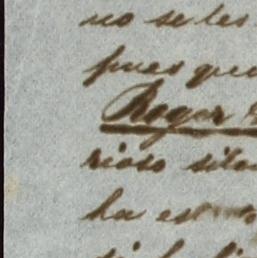 no se les
pues que
Roger
rioso sile
ha est